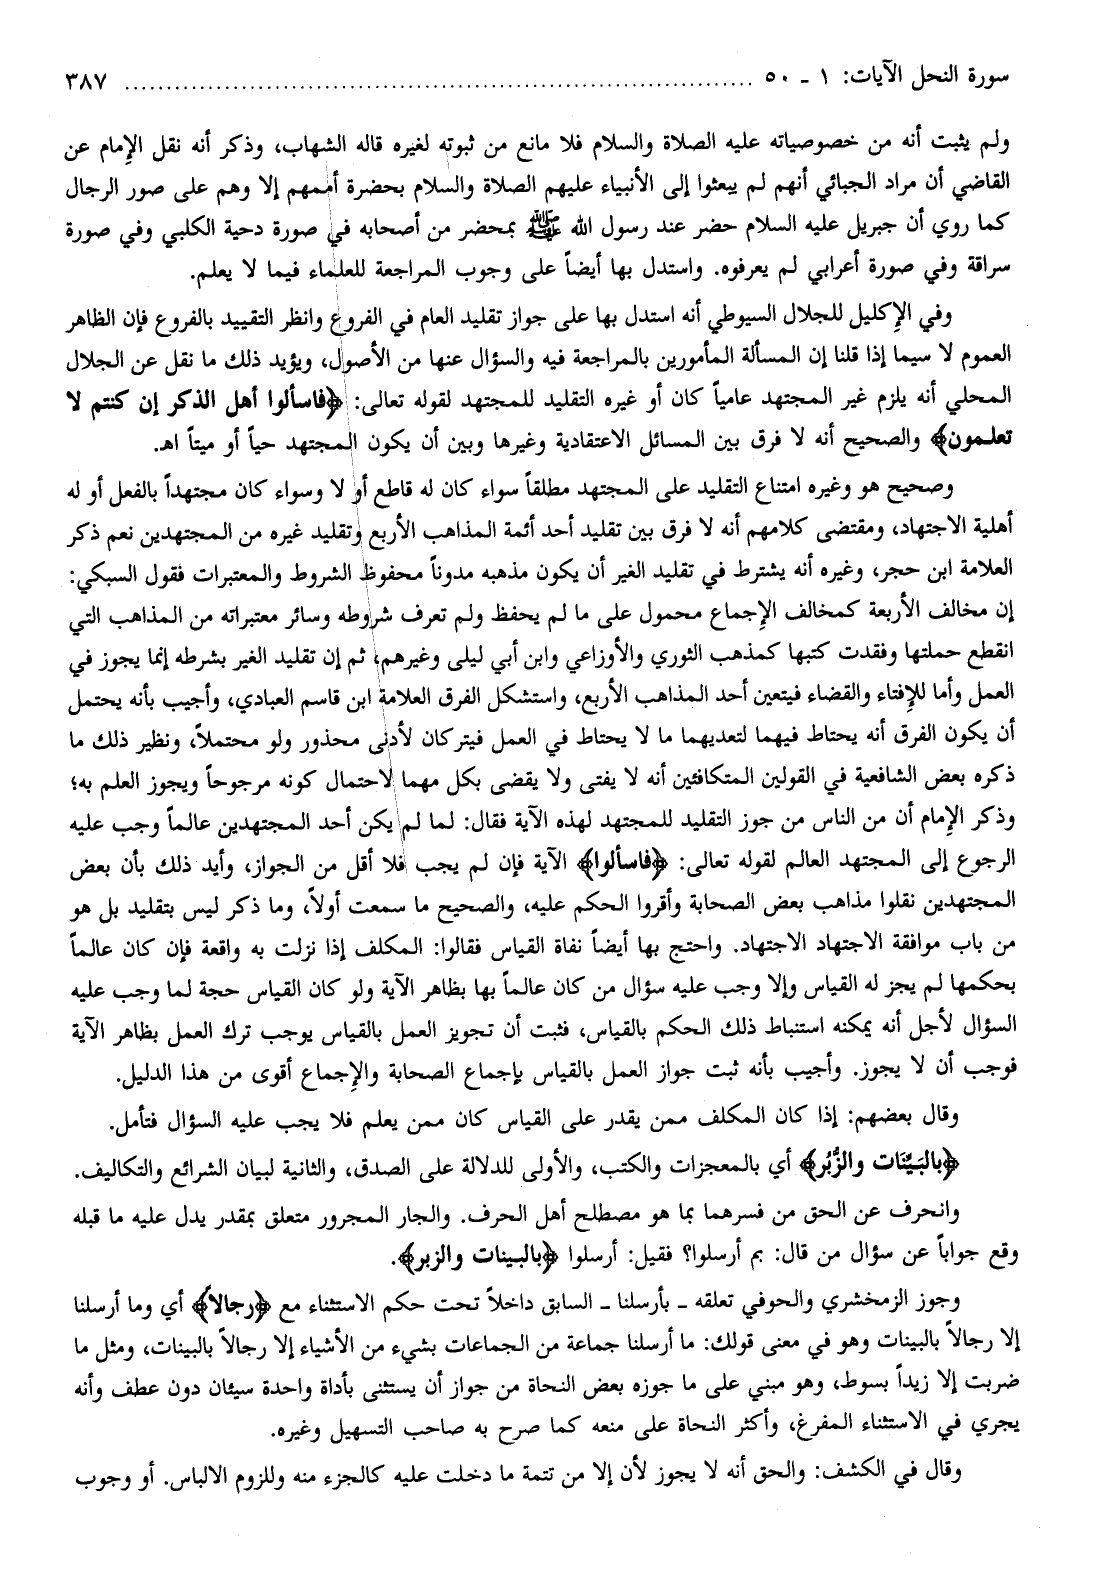 سورة النحل الآيات: ١ ـ ٥٠ ........................................................................... ٣٨٧
ولم يثبت أنه من خصوصياته عليه الصلاة والسلام فلا مانع من ثبوته لغيره قاله الشهاب، وذكر أنه نقل الإمام عن
القاضي أن مراد الجبائي أنهم لم يبعثوا إلى الأنبياء عليهم الصلاة والسلام بحضرة أممهم إلا وهم على صور الرجال
كما روي أن جبريل عليه السلام حضر عند رسول الله ﷺ بمحضر من أصحابه في صورة دحية الكلبي وفي صورة
سراقة وفي صورة أعرابي لم يعرفوه. واستدل بها أيضاً على وجوب المراجعة للعلماء فيما لا يعلم.
وفي الإكليل للجلال السيوطي أنه استدل بها على جواز تقليد العام في الفروع وانظر التقييد بالفروع فإن الظاهر
العموم لا سيما إذا قلنا إن المسألة المأمورين بالمراجعة فيه والسؤال عنها من الأصول، ويؤيد ذلك ما نقل عن الجلال
المحلي أنه يلزم غير المجتهد عامياً كان أو غيره التقليد للمجتهد لقوله تعالى: ﴿فاسألوا أهل الذكر إن كنتم لا
تعلمون﴾ والصحيح أنه لا فرق بين المسائل الاعتقادية وغيرها وبين أن يكون المجتهد حياً أو ميتاً اهـ.
وصحيح هو وغيره امتناع التقليد على المجتهد مطلقاً سواء كان له قاطع أو لا وسواء كان مجتهداً بالفعل أو له
أهلية الاجتهاد، ومقتضى كلامهم أنه لا فرق بين تقليد أحد أئمة المذاهب الأربع وتقليد غيره من المجتهدين نعم ذكر
العلامة ابن حجر، وغيره أنه يشترط في تقليد الغير أن يكون مذهبه مدوناً محفوظ الشروط والمعتبرات فقول السبكي:
إن مخالف الأربعة كمخالف الإجماع محمول على ما لم يحفظ ولم تعرف شروطه وسائر معتبراته من المذاهب التي
انقطع حملتها وفقدت كتبها كمذهب الثوري والأوزاعي وابن أبي ليلى وغيرهم، ثم إن تقليد الغير بشرطه إنما يجوز في
العمل وأما للإفتاء والقضاء فيتعين أحد المذاهب الأربع، واستشكل الفرق العلامة ابن قاسم العبادي، وأجيب بأنه يحتمل
أن يكون الفرق أنه يحتاط فيهما لتعديهما ما لا يحتاط في العمل فيتركان لأدنى محذور ولو محتملاً، ونظير ذلك ما
ذكره بعض الشافعية في القولين المتكافئين أنه لا يفتى ولا يقضى بكل مهما لاحتمال كونه مرجوحاً ويجوز العلم به؛
وذكر الإمام أن من الناس من جوز التقليد للمجتهد لهذه الآية فقال: لما لم يكن أحد المجتهدين عالماً وجب عليه
الرجوع إلى المجتهد العالم لقوله تعالى: ﴿فاسألوا﴾ الآية فإن لم يجب فلا أقل من الجواز، وأيد ذلك بأن بعض
المجتهدين نقلوا مذاهب بعض الصحابة وأقروا الحكم عليه، والصحيح ما سمعت أولاً، وما ذكر ليس بتقليد بل هو
من باب موافقة الاجتهاد الاجتهاد. واحتج بها أيضاً نفاة القياس فقالوا: المكلف إذا نزلت به واقعة فإن كان عالماً
بحكمها لم يجز له القياس وإلا وجب عليه سؤال من كان عالماً بها بظاهر الآية ولو كان القياس حجة لما وجب عليه
السؤال لأجل أنه يمكنه استنباط ذلك الحكم بالقياس، فثبت أن تجويز العمل بالقياس يوجب ترك العمل بظاهر الآية
فوجب أن لا يجوز. وأجيب بأنه ثبت جواز العمل بالقياس بإجماع الصحابة والإجماع أقوى من هذا الدليل.
وقال بعضهم: إذا كان المكلف ممن يقدر على القياس كان ممن يعلم فلا يجب عليه السؤال فتأمل.
﴿بالبَيِّنَات والزُّبُر﴾ أي بالمعجزات والكتب، والأولى للدلالة على الصدق، والثانية لبيان الشرائع والتكاليف.
وانحرف عن الحق من فسرهما بما هو مصطلح أهل الحرف. والجار المجرور متعلق بمقدر يدل عليه ما قبله
وقع جواباً عن سؤال من قال: بم أرسلوا؟ فقيل: أرسلوا ﴿بالبينات والزبر﴾.
وجوز الزمخشري والحوفي تعلقه ـ بأرسلنا ـ السابق داخلاً تحت حكم الاستثناء مع ﴿رجالاً﴾ أي وما أرسلنا
إلا رجالاً بالبينات وهو في معنى قولك: ما أرسلنا جماعة من الجماعات بشيء من الأشياء إلا رجالاً بالبينات، ومثل ما
ضربت إلا زيداً بسوط، وهو مبني على ما جوزه بعض النحاة من جواز أن يستثنى بأداة واحدة سيئان دون عطف وأنه
يجري في الاستثناء المفرغ، وأكثر النحاة على منعه كما صرح به صاحب التسهيل وغيره.
وقال في الكشف: والحق أنه لا يجوز لأن إلا من تتمة ما دخلت عليه كالجزء منه وللزوم الالباس. أو وجوب